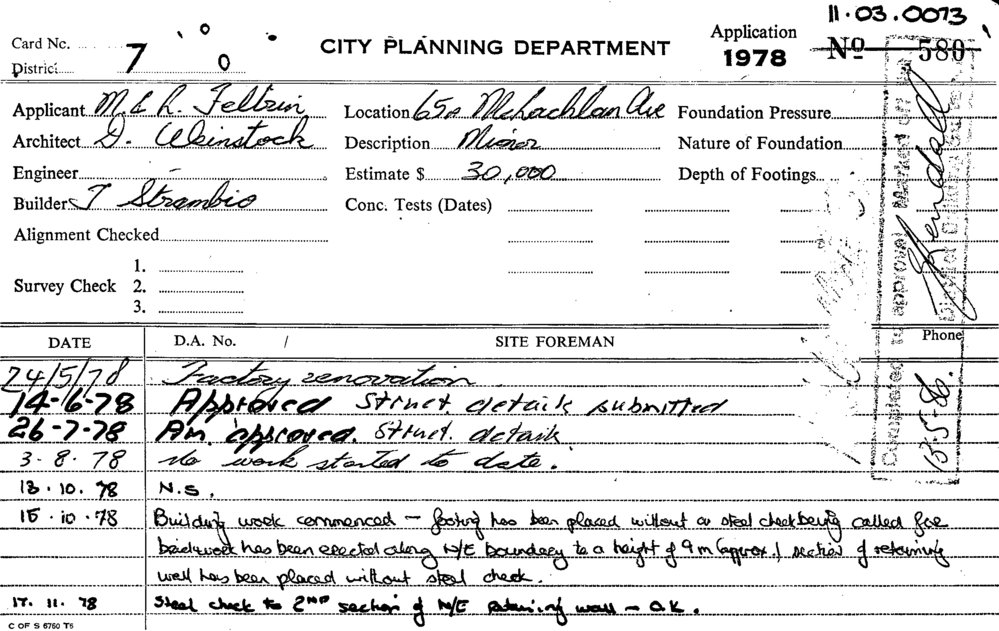 11.03.0073
Card No. 7
District 0
CITY PLANNING DEPARTMENT
Application
1978
No 580
Applicant M. & L. Feltrin
Architect D. Weinstock
Engineer
Builder T Strambio
Alignment Checked
Survey Check 1.
2.
3.
Location 65A McLachlan Ave
Description Minor
Estimate $ 30,000
Conc. Tests (Dates)
Foundation Pressure
Nature of Foundation
Depth of Footings
Phone
Completed to approval Marked on
13-5-86.
DATE D.A. No. / SITE FOREMAN
24/5/78 Factory renovation
14-6-78 Approved Struct. details submitted
26-7-78 Am. approved. Struct. details
3-8-78 No work started to date.
13.10.78 N.S.
15.10.78 Building work commenced – footing has been placed without a steel check being called for
brickwork has been erected along N/E boundary to a height of 9m (approx.) section of retaining
wall has been placed without steel check.
17.11.78 Steel check to 2ND section of N/E retaining wall – O.K.
C OF S 6760 T5